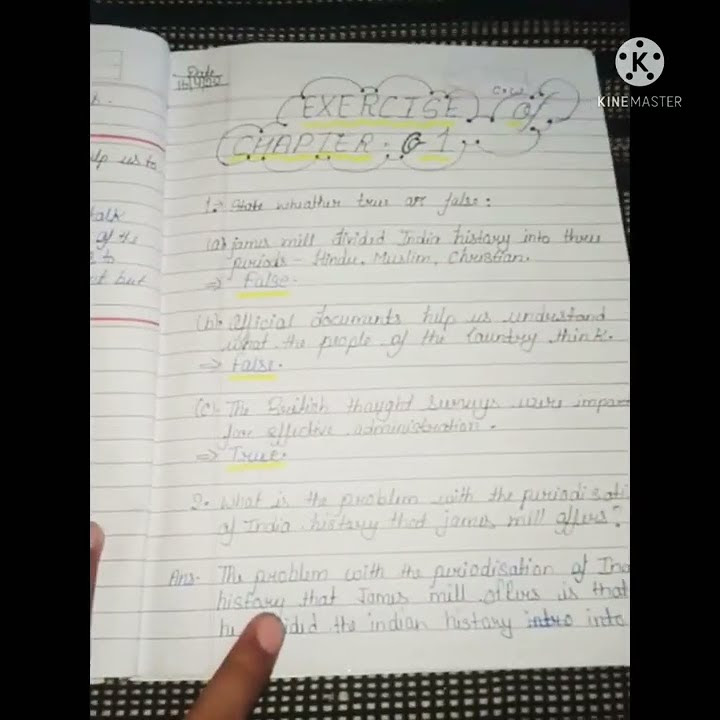 Date
KINEMASTER
C.W
EXERCISE of
CHAPTER. 1
1. State wheather true or false:
(a) james mill divided India history into three
periods - Hindu, Muslim, Christian.
⇒ False.
(b) official documents help us understand
what the people of the Countery think.
⇒ False.
(c) The British thought surveys were impor
for effective administration.
⇒ True.
2. What is the problem with the periodisati
of India history that james mill offers?
Ans- The problem with the periodisation of Ind
history that James mill offers is that
the indian history into
elp us to
talk
of the
to
but